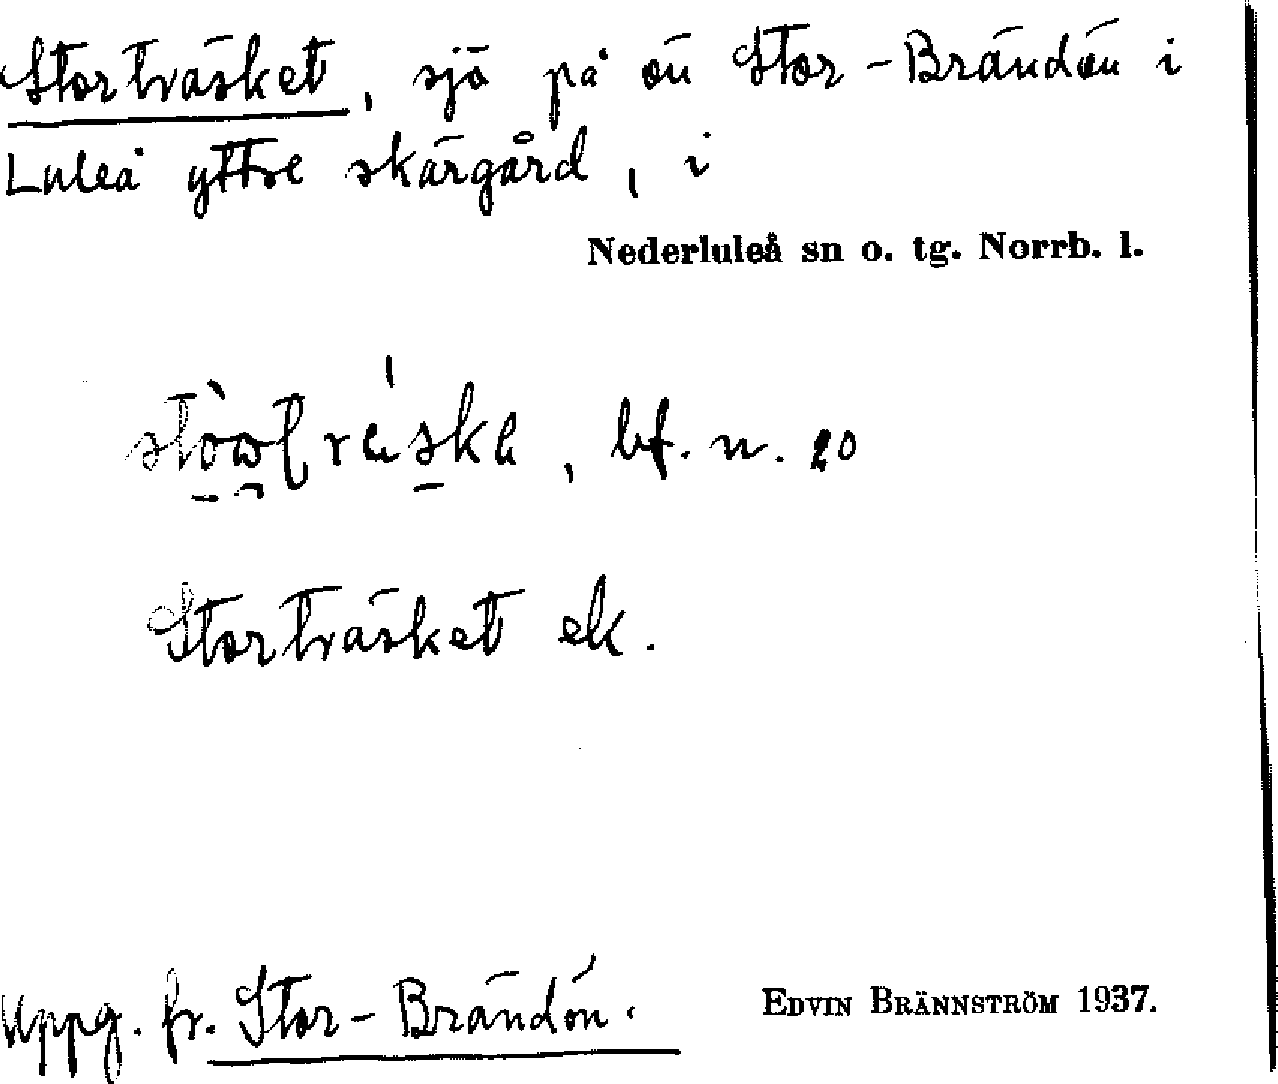 Storträsket, sjö på ön Stor-Brändön i
Luleå yttre skärgård, i
Nederluleå sn o. tg. Norrb. l.
bf. n. 20
Storträsket ek.
Uppg. fr. Stor-Brändön.
EDVIN BRÄNNSTRÖM 1937.